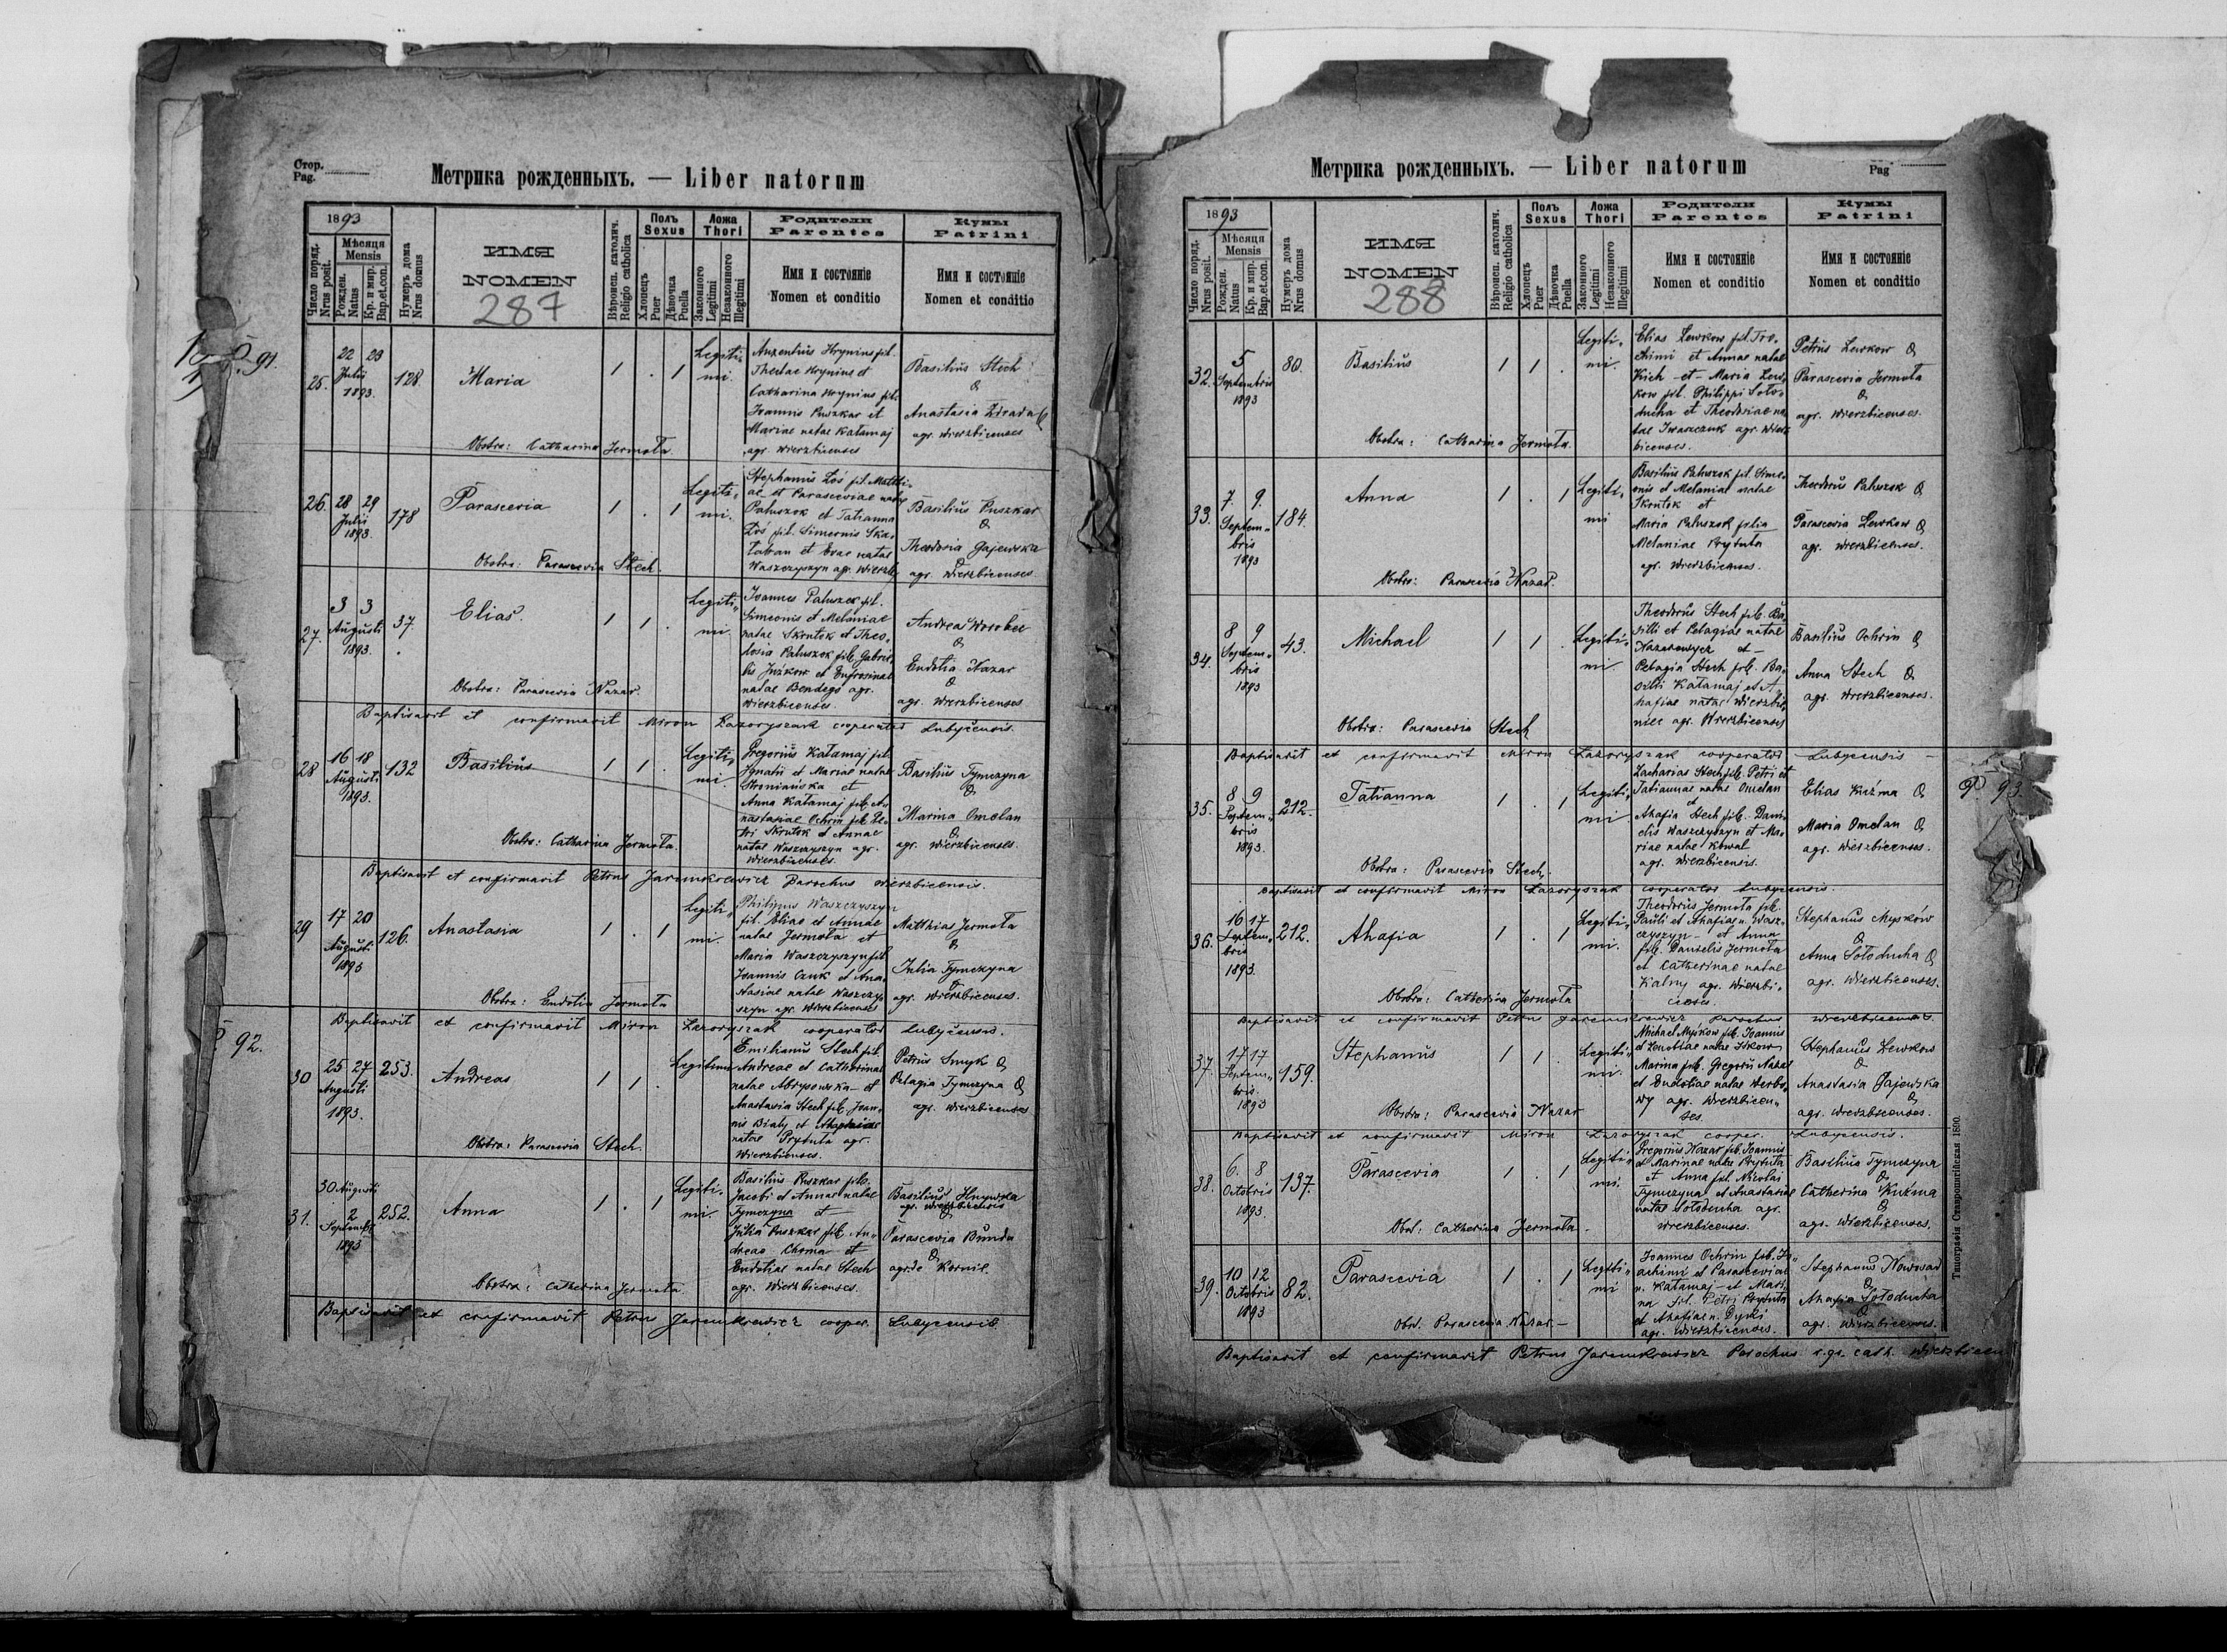 Стор.
Pag.
Метрика рожденныхъ. — Liber natorum
1893
Число поряд.
Nrus posit.
Мѣсяця
Mensis
Рожден.
Natus
Кр. и мир.
Bap.et.con.
Нумеръ дома
Nrus domus
ИМЯ
NOMEN
287
Вѣроисп. католич.
Religio catholica
Полъ
Sexus
Хлопецъ
Puer
Дѣвочка
Puella
Ложа
Thori
Законного
Legitimi
Незаконного
Illegitimi
Родители
Parentes
Имя и состояніе
Nomen et conditio
Кумы
Patrini
Имя и состояніе
Nomen et conditio
91.
25.
22 23
Julii
1893.
128.
Maria
1 . 1
Legiti„
mi.
Auxentius Hrynius fil.
Theclae Hrynius et
Catharina Hrynius fil.
Joannis Puszkar et
Mariae natae Katamaj
agr. wierzbicenses
Basilius Stech
&
Anastasia
agr. wierzbicenses
Obstra: Catharina Jermota.
26.
28 29
Julii
1893.
178
Parascevia
1 . 1
Legiti„
mi.
Stephanus Łós fil. Matthi„
ae et Parasceviae natae
Patuszok et Tatianna
Łós fil. Simeonis Ska„
taban et Evae natae
Waszczyszyn agr. wierzb.
Basilius Puszkar
&
Theodosia Gajewska
&
agr. wierzbicenses.
Obstra: Parascevia Stech.
27.
3 3
Augusti
1893.
37.
Elias.
1 1 .
Legiti„
mi.
Joannes Patuszok fil.
Simeonis et Melaniae
natae Skrutok et Theo„
dosia Patuszok fil. Gabrie„
lis Juzkow et Eufrosinae
natae Bendega agr.
wierzbicenses.
Andreas Worobec
&
Eudotia Nazar
&
agr. wierzbicenses
Obstra: Parascevia Nazar.
Baptisavit et confirmavit Miron Łazoryszak cooperator Lubycensis.
28
16 18
Augusti
1893.
132
Basilius
1 1 .
Legiti„
mi.
Gregorius Katamaj fil.
Ignatii et Mariae natae
Anna Katamaj fil. A„
nastasiae Ochrin fil. Pe„
tri Skrutok et Annae
natae Waszczyszyn agr.
wierzbicenses.
Basilius Tymczyna
&
Marina Omelan
&
agr. wierzbicenses.
Obstra: Catharina Jermota.
Baptisavit et confirmavit Petrus Jaremkiewicz Parochus wierzbicensis.
29
17 20
Augusti
1893
126.
Anastasia
1 . 1
Legiti„
mi.
Philippus Waszczyszyn
fil. Eliae et Annae
natae Jermota et
Maria Waszczyszyn fil.
Joannis Czuk et Ana„
stasiae natae Waszczy„
szyn agr. wierzbicenses
Matthias Jermota
&
Julia Tymczyna
&
agr. wierzbicenses.
Obstra: Eudotia Jermota
Baptisavit et confirmavit Miron Łazoryszak cooperator Lubycensis.
92.
30
25 27
Augusti
1893.
253.
Andreas
1 1 .
Legitimi
Emilianus Stech fil.
Andreae et Catharinae
natae Abrysowska et
Anastasia Stech fil. Joan„
nis Biały et
natae Prytuta agr.
wierzbicenses.
Petrus Smyk &
Pelagia Tymczyna &
agr. wierzbicenses
Obstra: Parascevia Stech.
31.
30 Augusti
2
Septembris
1893
252.
Anna
1 . 1
Legiti„
mi.
Basilius Puszkar fil.
Jacobi et Annae natae
Tymczyna et
Julia Puszkar fil. An„
dreae Choma et
Eudotiae natae Stech
agr. wierzbicenses.
Basilius
agr. wierzbicensis
&
Parascevia Bunda
&
agr. de Kornie.
Obstra: Catherina Jermota.
Baptisavit et confirmavit Petrus Jaremkiewicz cooper. Lubycensis
Метрика рожденныхъ. — Liber natorum
Pag
1893
Число поряд.
Nrus posit.
Мѣсяця
Mensis
Рожден.
Natus
Кр. и мир.
Bap.et.con.
Нумеръ дома
Nrus domus
ИМЯ
NOMEN
288
Вѣроисп. католич.
Religio catholica
Полъ
Sexus
Хлопецъ
Puer
Дѣвочка
Puella
Ложа
Thori
Законного
Legitimi
Незаконного
Illegitimi
Родители
Parentes
Имя и состояніе
Nomen et conditio
Кумы
Patrini
Имя и состояніе
Nomen et conditio
32.
5
Septembris
1893
80.
Basilius
1 1 .
Legiti„
mi.
Elias Lewkow fil. Tro„
chimi et Annae natae
Kich et Maria Lew„
kow fil. Philippi Soło„
ducha et Theodosiae na„
tae Iwaszczuk agr. wierz„
bicenses.
Petrus Lewkow &
Parascevia Jermota
&
agr. wierzbicenses.
Obstra: Catharina Jermota.
33.
7 9.
Septem„
bris
1893
184.
Anna
1 . 1
Legiti„
mi
Basilius Patuszok fil. Sime„
onis et Melaniae natae
Skrutok et
Maria Patuszok filia
Melaniae Prytuta
agr. wierzbicenses.
Theodorus Patuszok &
Parascevia Lewkow &
agr. wierzbicenses.
Obstra: Parascevia Nazar.
34.
8 9
Septem„
bris
1893
43.
Michael
1 1 .
Legiti„
mi.
Theodorus Stech fil. Ba„
silii et Pelagiae natae
Nazarewycz et
Pelagia Stech fil. Ba„
silii Katamaj et A„
hafiae natae Wierzbi„
niec agr. Wierzbicenses
Basilius Ochrin &
Anna Stech &
agr. wierzbicenses.
Obstra: Parascevia Stech
Baptisavit et confirmavit Miron Łazoryszak cooperator Lubycensis
35.
8 9
Septem„
bris
1893.
212.
Tatianna
1 . 1
Legiti„
mi
Zacharias Stech fil. Petri et
Tatiannae natae Omelan
et
Ahafia Stech fil. Dani„
elis Waszczyszyn et Ma„
riae natae Kowal
agr. wierzbicensis.
Elias Kuźma &
Maria Omelan &
agr. wierzbicenses.
93.
Obstra: Parascevia Stech.
Baptisavit et confirmavit Miron Łazoryszak cooperator Lubycensis.
36.
16 17
Septem„
bris
1893.
212.
Ahafia
1 . 1
Legiti„
mi.
Theodorus Jermota fil.
Pauli et Ahafiae n. Wasz„
czyszyn et Anna
fil. Danielis Jermota
et Catherinae natae
Kalny agr. wierzbi„
censes.
Stephanus Myśków
&
Anna Sołoducha &
agr. wierzbicenses.
Obstra: Catherina Jermota
Baptisavit et confirmavit Petrus Jaremkiewicz Parochus wierzbicensis.
37.
17 17
Septem„
bris.
1893
159.
Stephanus
1 1 .
Legiti„
mi.
Michael Myśkow fil. Joannis
Marina fil. Gregorii Nazar
et Eudotiae natae Werbo„
wy agr. wierzbicen„
ses.
Stephanus Lewkow
&
Anastasia Gajewska
&
agr. wierzbicenses.
Obstra: Parascevia Nazar
Baptisavit et confirmavit Miron Łazoryszak cooper. Lubycensis.
38.
6. 8
Octobris
1893.
137.
Parascevia
1 . 1
Legiti„
mi.
Gregorius Nazar fil. Joannis
et Marinae natae Prytuta
et Anna fil. Nicolai
Tymczyna et Anastasiae
natae Sołoducha agr.
wierzbicenses.
Basilius Tymczyna
&
Catherina Kuźma
&
agr. wierzbicenses.
Obst: Catherina Jermota
39.
10 12
Octobris
1893
82.
Parascevia
1 . 1
Legiti„
mi
Joannes Ochrin fil. Jo„
achimi et Parasceviae
n. Katamaj et Mari„
na fil. Petri Prytuta
et Ahafiae n. Dyski
agr. wierzbicenses.
Stephanus Nowosad
&
Ahafia Sołoducha
&
agr. wierzbicenses.
Obst. Parascevia Nazar.
Baptisavit et confirmavit Petrus Jaremkiewicz Parochus r. gr. cath. wierzbicen
Типографія Ставропигійская 1890.